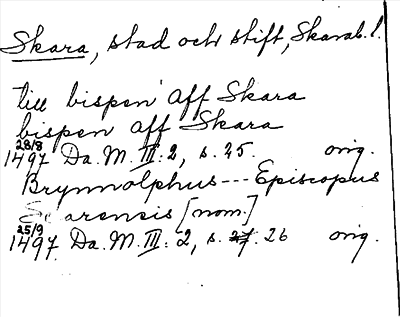 Skara, stad och stift, Skarab. l.
till bispen aff Skara
bispen aff Skara
28/8
1497 Da. M. III: 2, s. 25. orig.
Brynnolphus--- Episcopus
Scarensis [nom.]
25/9
1497. Da. M. III: 2, s. 27. 26 orig.